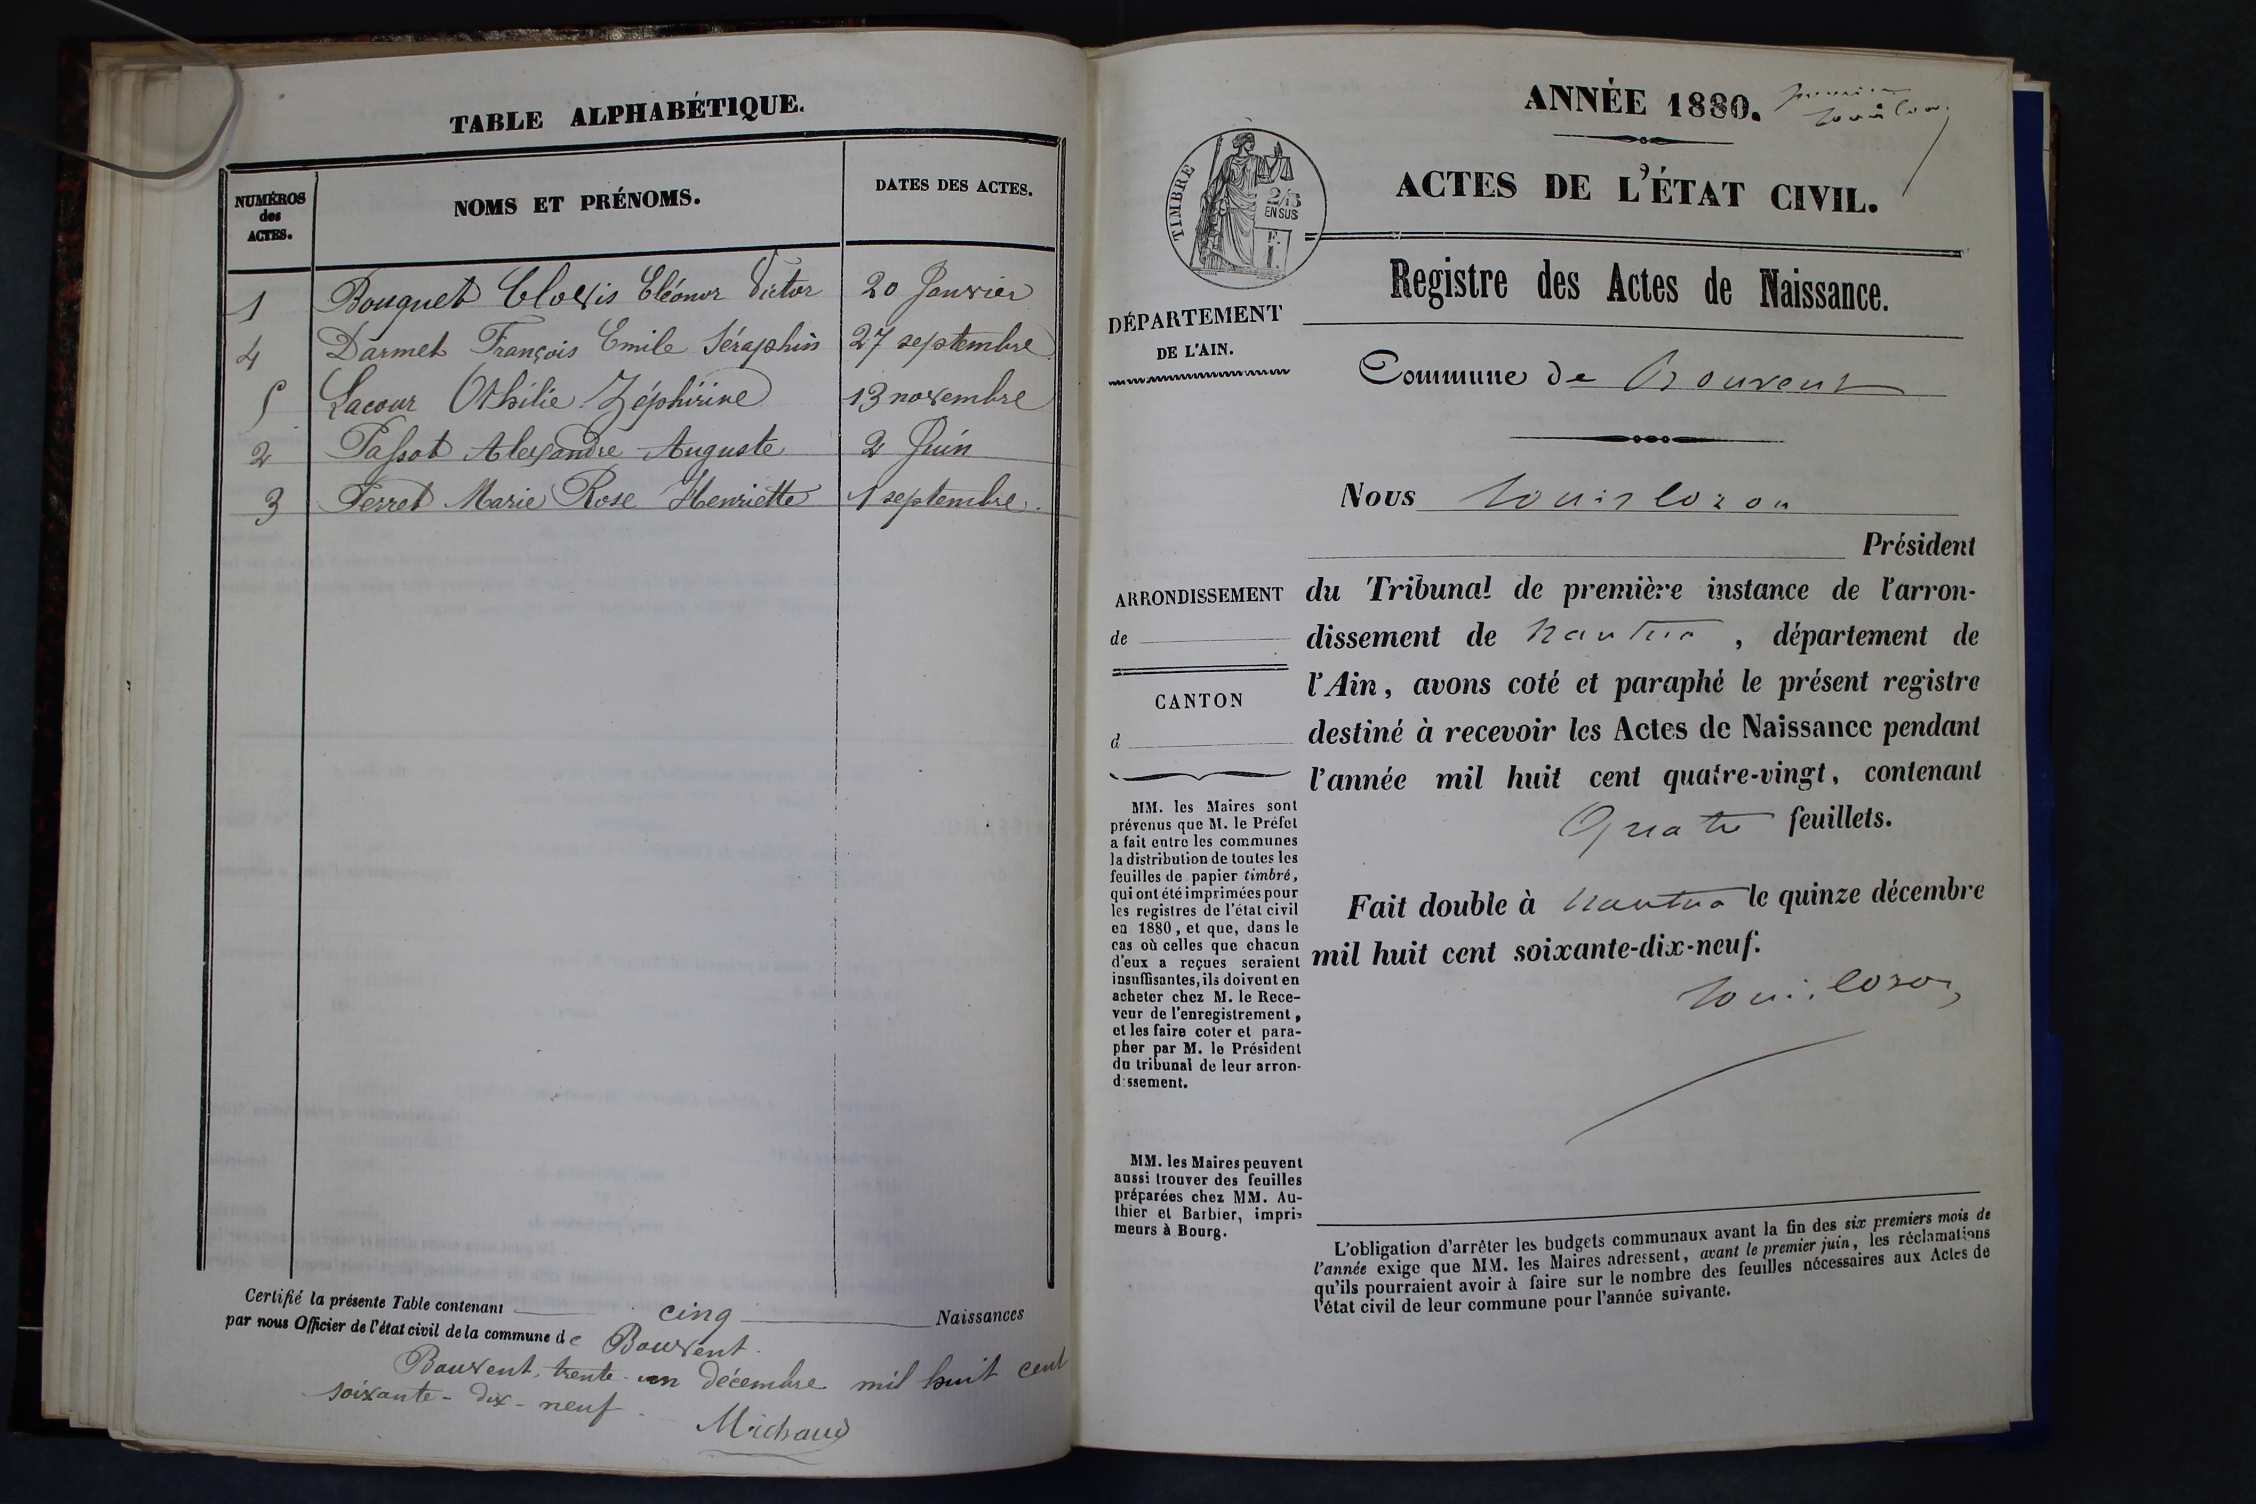 TABLE ALPHABÉTIQUE.
NUMÉROS des ACTES.
NOMS ET PRÉNOMS.
DATES DES ACTES.
1 Bouquet Clovis Eléonor Victor 20 Janvier
4 Darmet François Emile Séraphin 27 septembre
5 Lacour Othilie Zéphirine 13 novembre
2 Passot Alexandre Auguste 2 Juin
3 Perret Marie Rose Henriette 1 septembre.
Certifié la présente Table contenant cinq Naissances
par nous Officier de l'état civil de la commune de Bouvent.
Bouvent, trente-un décembre mil huit cent
soixante-dix-neuf.
Michaud
ANNÉE 1880.
premier
TIMBRE
2/10
EN SUS
ACTES DE L'ÉTAT CIVIL.
Registre des Actes de Naissance.
DÉPARTEMENT
DE L'AIN.
Commune de Bouvent
Nous
Président
ARRONDISSEMENT
de
CANTON
d
du Tribunal de première instance de l'arron-
dissement de nantua, département de
l'Ain, avons coté et paraphé le présent registre
destiné à recevoir les Actes de Naissance pendant
l'année mil huit cent quatre-vingt, contenant
Quatre feuillets.
Fait double à nantua le quinze décembre
mil huit cent soixante-dix-neuf.
MM. les Maires sont
prévenus que M. le Préfet
a fait entre les communes
la distribution de toutes les
feuilles de papier timbré,
qui ont été imprimées pour
les registres de l'état civil
en 1880, et que, dans le
cas où celles que chacun
d'eux a reçues seraient
insuffisantes, ils doivent en
acheter chez M. le Rece-
veur de l'enregistrement,
et les faire coter et para-
pher par M. le Président
du tribunal de leur arron-
dissement.
MM. les Maires peuvent
aussi trouver des feuilles
préparées chez MM. Au-
thier et Barbier, impri-
meurs à Bourg.
L'obligation d'arrêter les budgets communaux avant la fin des six premiers mois de
l'année exige que MM. les Maires adressent, avant le premier juin, les réclamations
qu'ils pourraient avoir à faire sur le nombre des feuilles nécessaires aux Actes de
l'état civil de leur commune pour l'année suivante.